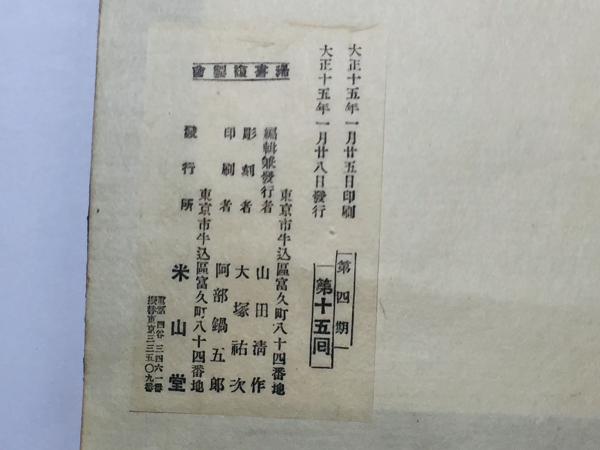 大正十五年一月廿五日印刷
大正十五年一月廿八日發行
第四期
第十五囘
稀書複製會
東京市牛込區富久町八十四番地
編輯兼發行者 山田淸作
彫刻者 大塚祐次
印刷者 阿部鍋五郎
東京市牛込區富久町八十四番地
發行所 米山堂
電話四谷三四六一番
振替東京三三五〇九番